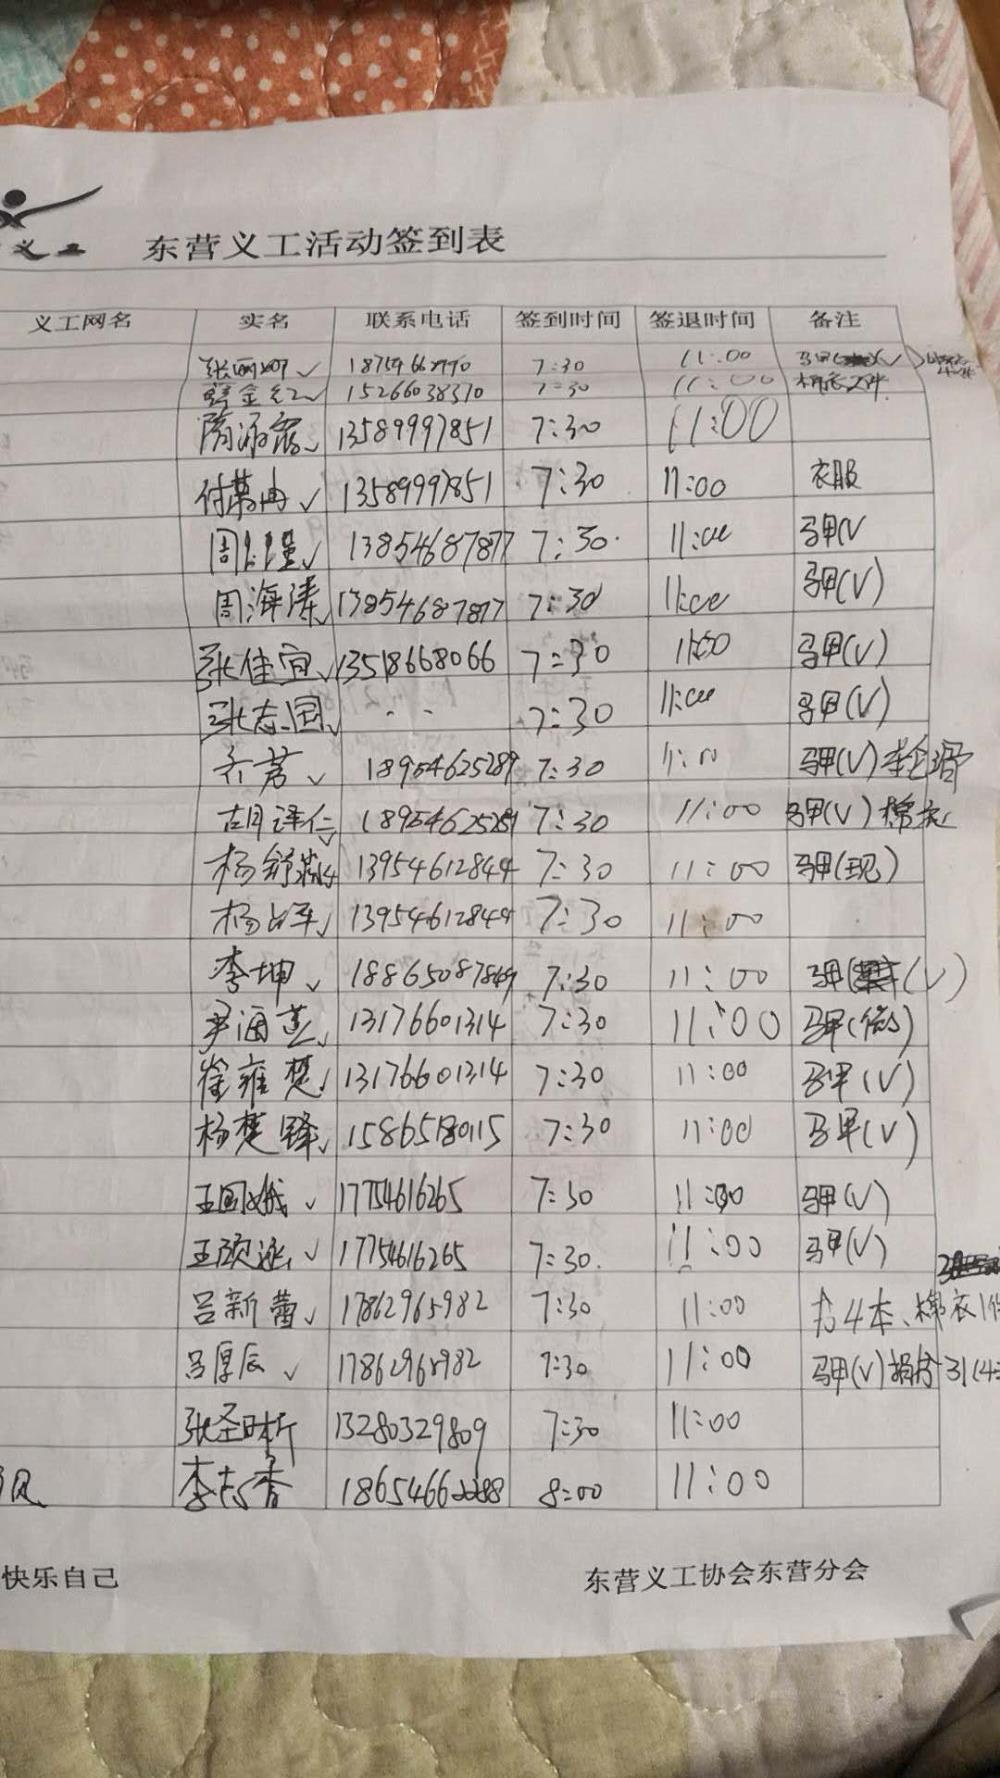 义工
东营义工活动签到表
义工网名 实名 联系电话 签到时间 签退时间 备注
7:30 11:00
金红 15266038370 7:30 11:00
隋 13589997851 7:30 11:00
付 13589997851 7:30 11:00 衣服
周 13854687877 7:30 11:00 马甲(V
周海涛 13854687877 7:30 11:00 马甲(V)
张佳宜 13518668066 7:30 11:00 马甲(V)
张志国 7:30 11:00 马甲(V)
齐芳 18954625289 7:30 11:00 马甲(V)
胡译仁 18954625289 7:30 11:00 马甲(V) 棉衣
杨舒 13954612844 7:30 11:00 马甲(现)
杨占军 13954612844 7:30 11:00
李坤 18865087869 7:30 11:00 马甲(V)
尹海 13176601314 7:30 11:00 马甲(微)
崔雍楚 13176601314 7:30 11:00 马甲(V)
杨楚铎 15865180115 7:30 11:00 马甲(V)
王国娥 17754616265 7:30 11:00 马甲(V)
王 17754616265 7:30 11:00 马甲(V)
吕新蕾 17862965982 7:30 11:00 4本、棉衣1件
吕厚辰 17862965982 7:30 11:00 马甲(V)
张圣昕 13280329809 7:30 11:00
风 李志香 8:00 11:00
快乐自己 东营义工协会东营分会